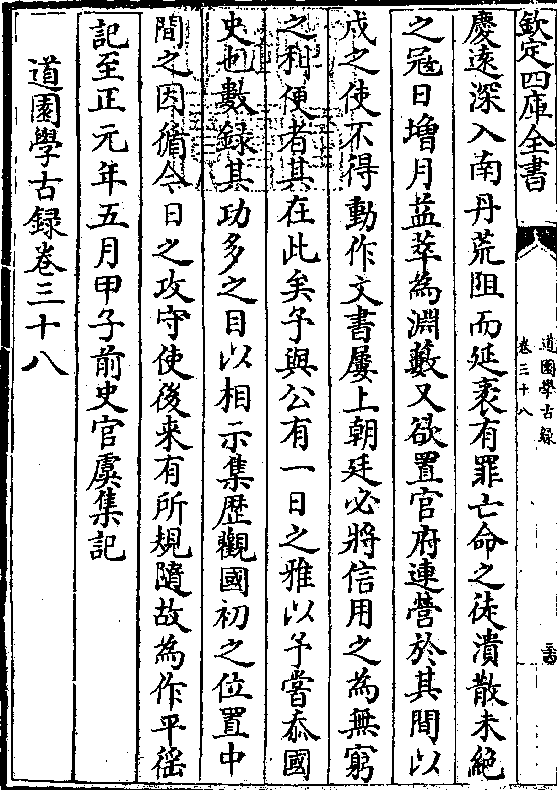 欽定四庫全書
道園學古録
卷三十八
慶遠深入南丹荒阻而延袤有罪亡命之徒潰散未絶
之冦日增月益萃為淵藪又欲置官府連營於其間以
戍之使不得動作文書屢上朝廷必將信用之為無窮
之利便者其在此矣予與公有一日之雅以予嘗忝國
史也數録其功多之目以相示集歴觀國初之位置中
間之因循今日之攻守使後来有所規隨故為作平徭
記至正元年五月甲子前史官虞集記
道園學古録卷三十八